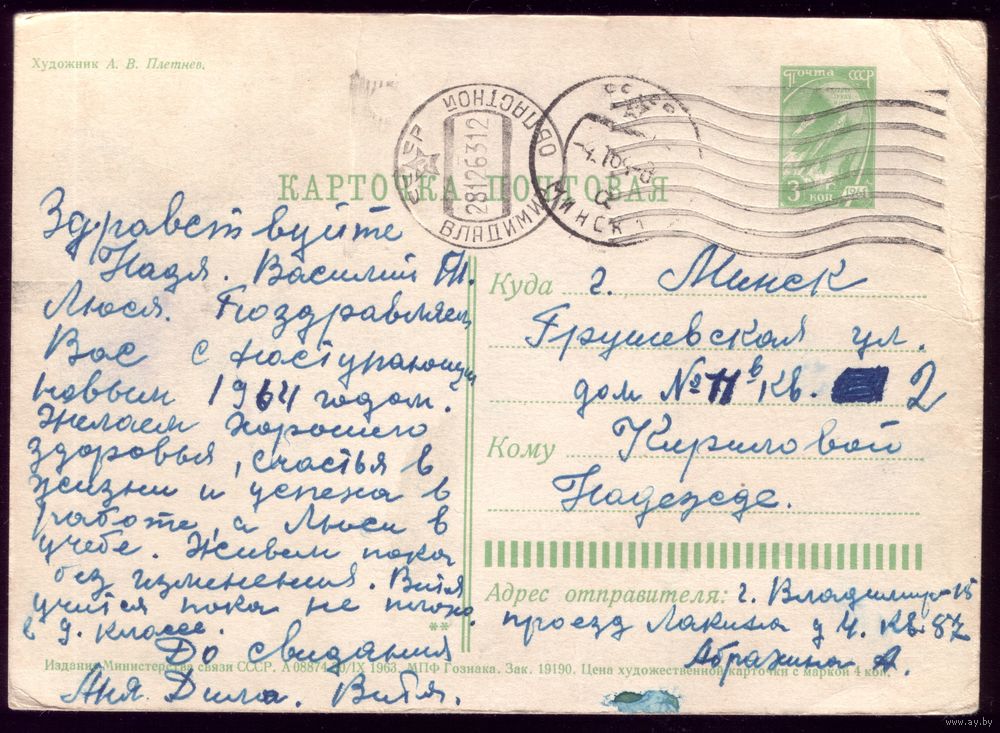 Художник А. В. Плетнев.
СССР
ВЛАДИМИР ОБЛАСТНОЙ
28126312
СССР
МИНСК 1
Почта СССР
3 коп
1961
КАРТОЧКА ПОЧТОВАЯ
Здравствуйте
Надя. Василий
Люся. Поздравляем
Вас с наступающим
новым 1964 годом.
Желаем хорошего
здоровья, счастья в
жизни и успеха в
работе, а Люси в
учебе. Живем пока
без изменения. Витя
учится пока не плохо.
в 9. классе.
До свидания
Аня Дима. Витя.
Куда г. Минск
Грушевская ул.
дом № 11в кв. 2
Кому Кириловой
Надежде.
Адрес отправителя: г. Владимир-15
проезд Лакина д 4. кв. 87
Абрахина А.
**
Издание Министерства связи СССР. А 08874 30/IX 1963. МПФ Гознака. Зак. 19190. Цена художественной карточки с маркой 4 коп.
www.ay.by